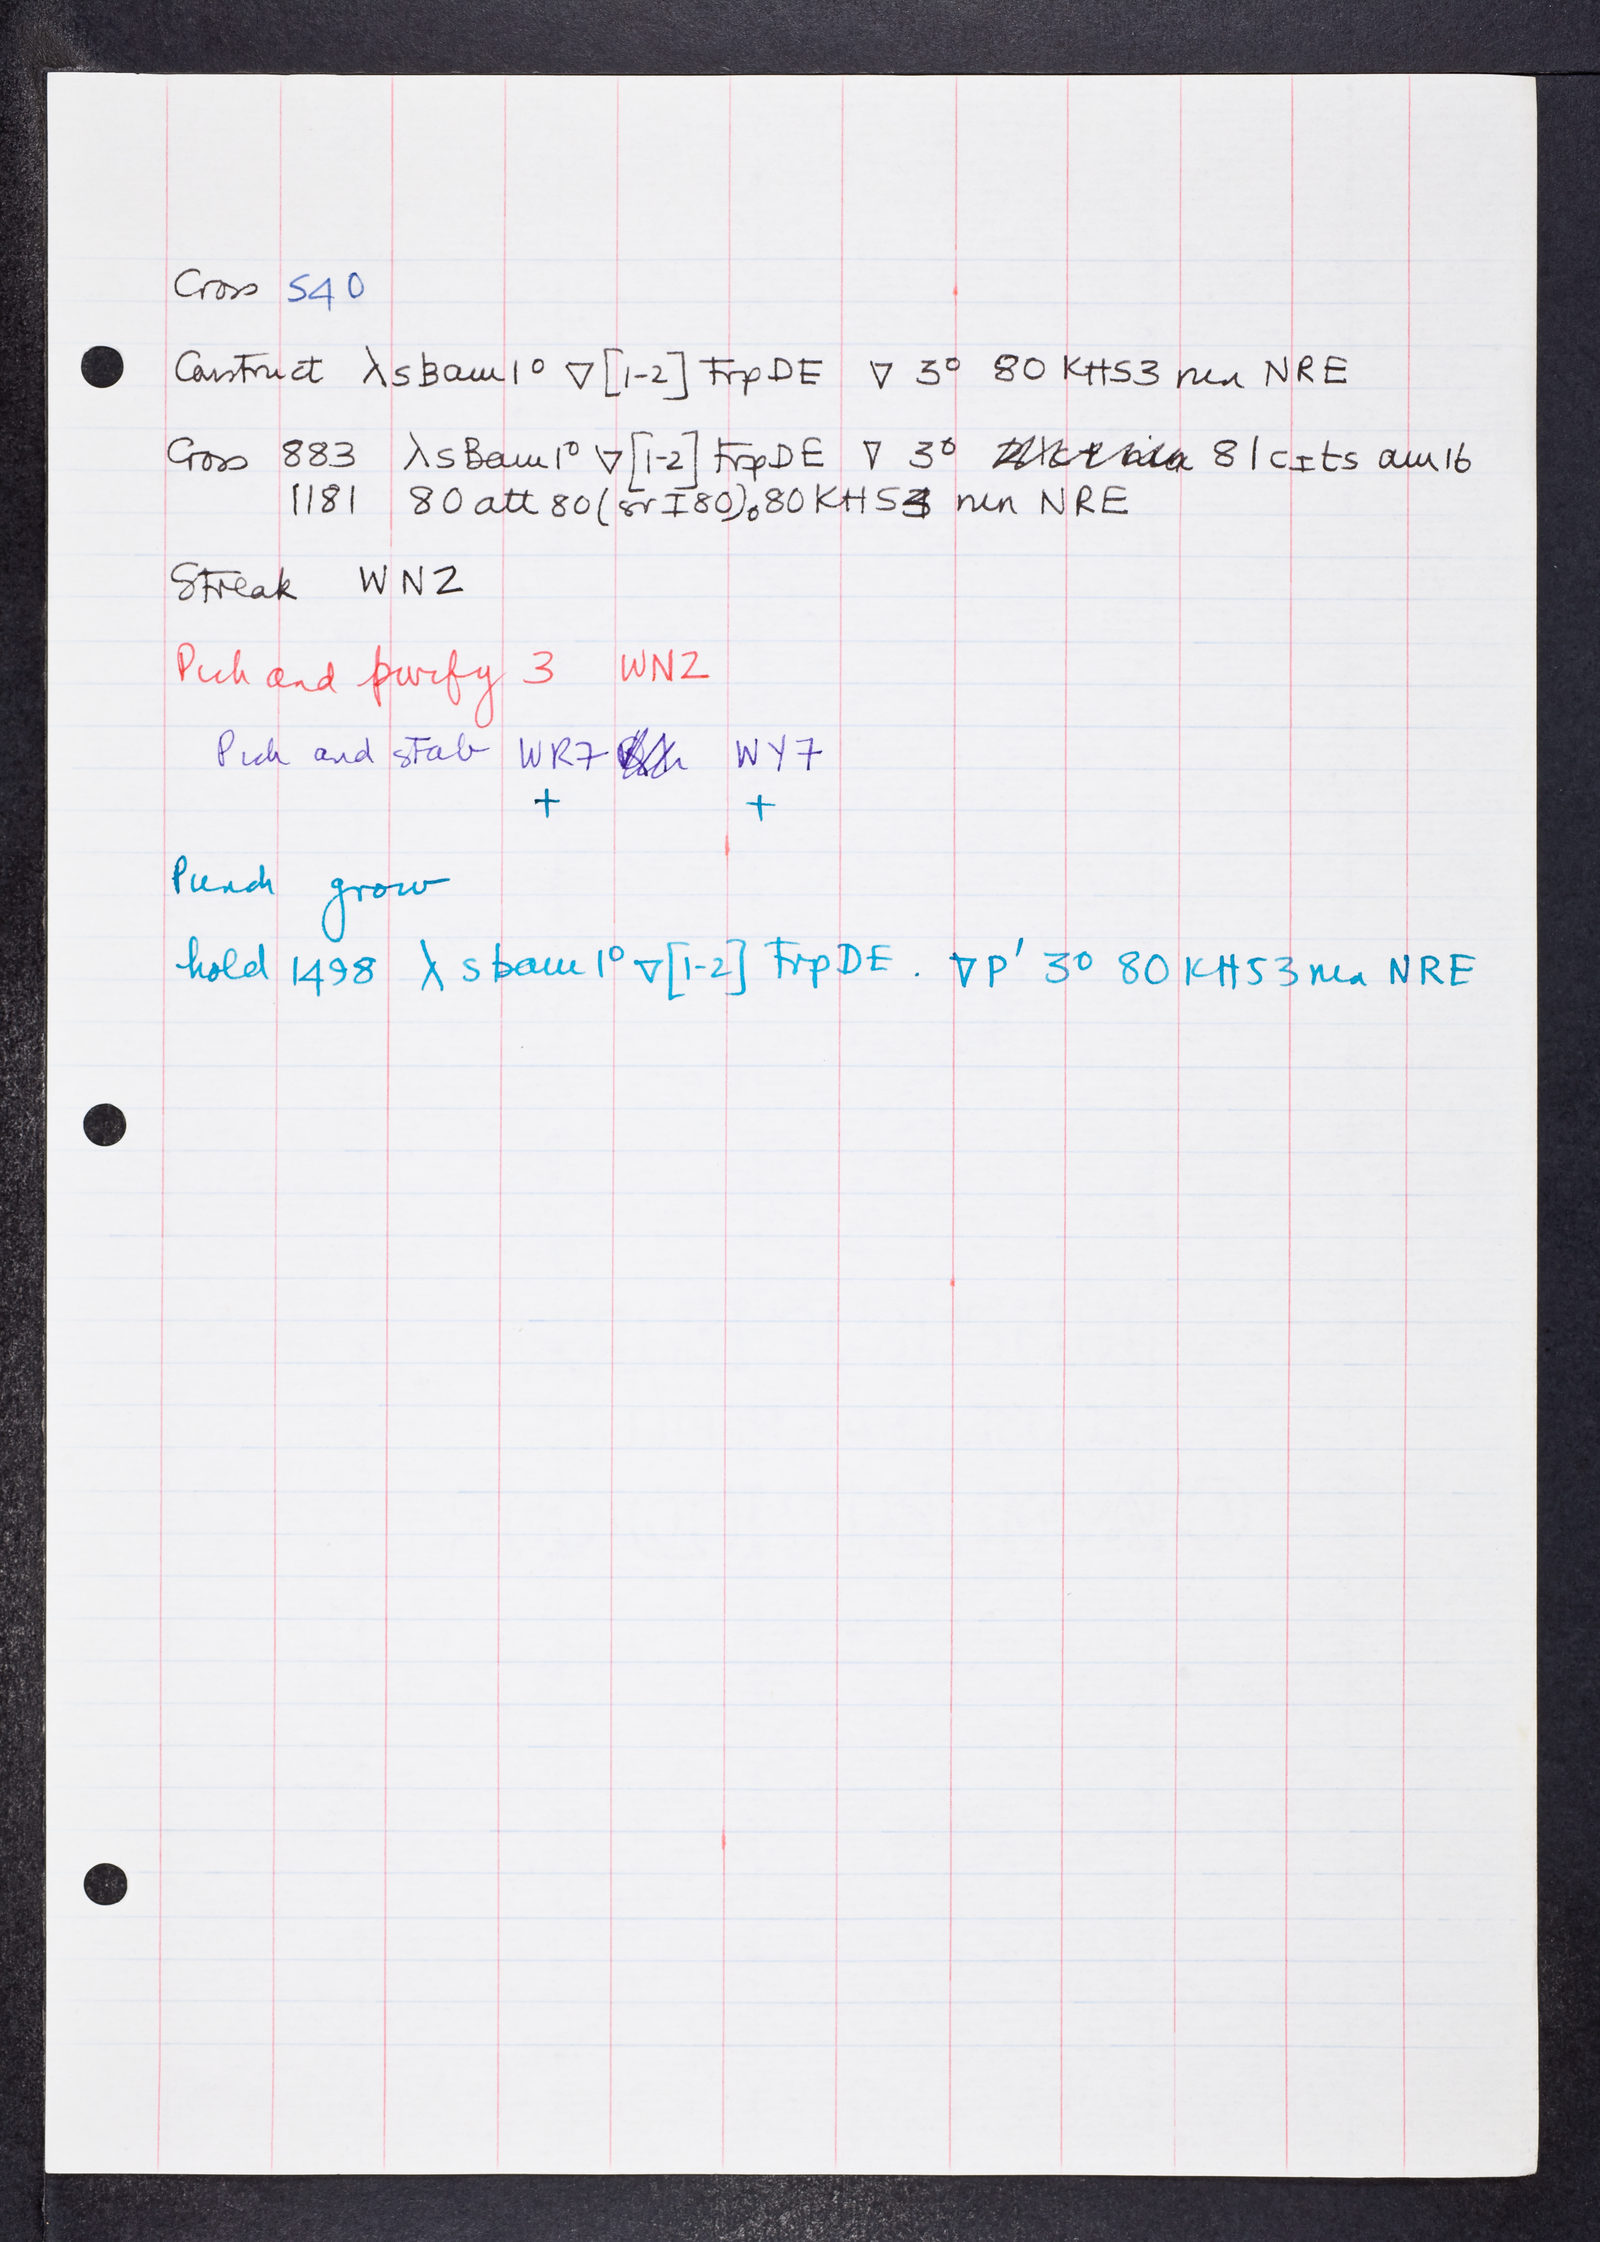 Cross S40
Construct λ sBam1° ∇[1-2] TrpDE ∇ 3° 80 KHS3 nin NRE
Cross 883 λ sBam1° ∇[1-2] TrpDE ∇ 3° 81 cIts am16
1181 80 att 80 (sr I 80)₀ 80 KHS3 nin NRE
Streak WN2
Pick and purify 3 WN2
Pick and stab WR7 WY7
+ +
Punch grow
hold 1498 λ sbam1° ∇[1-2] TrpDE . ∇ P' 3° 80 KHS3 nin NRE